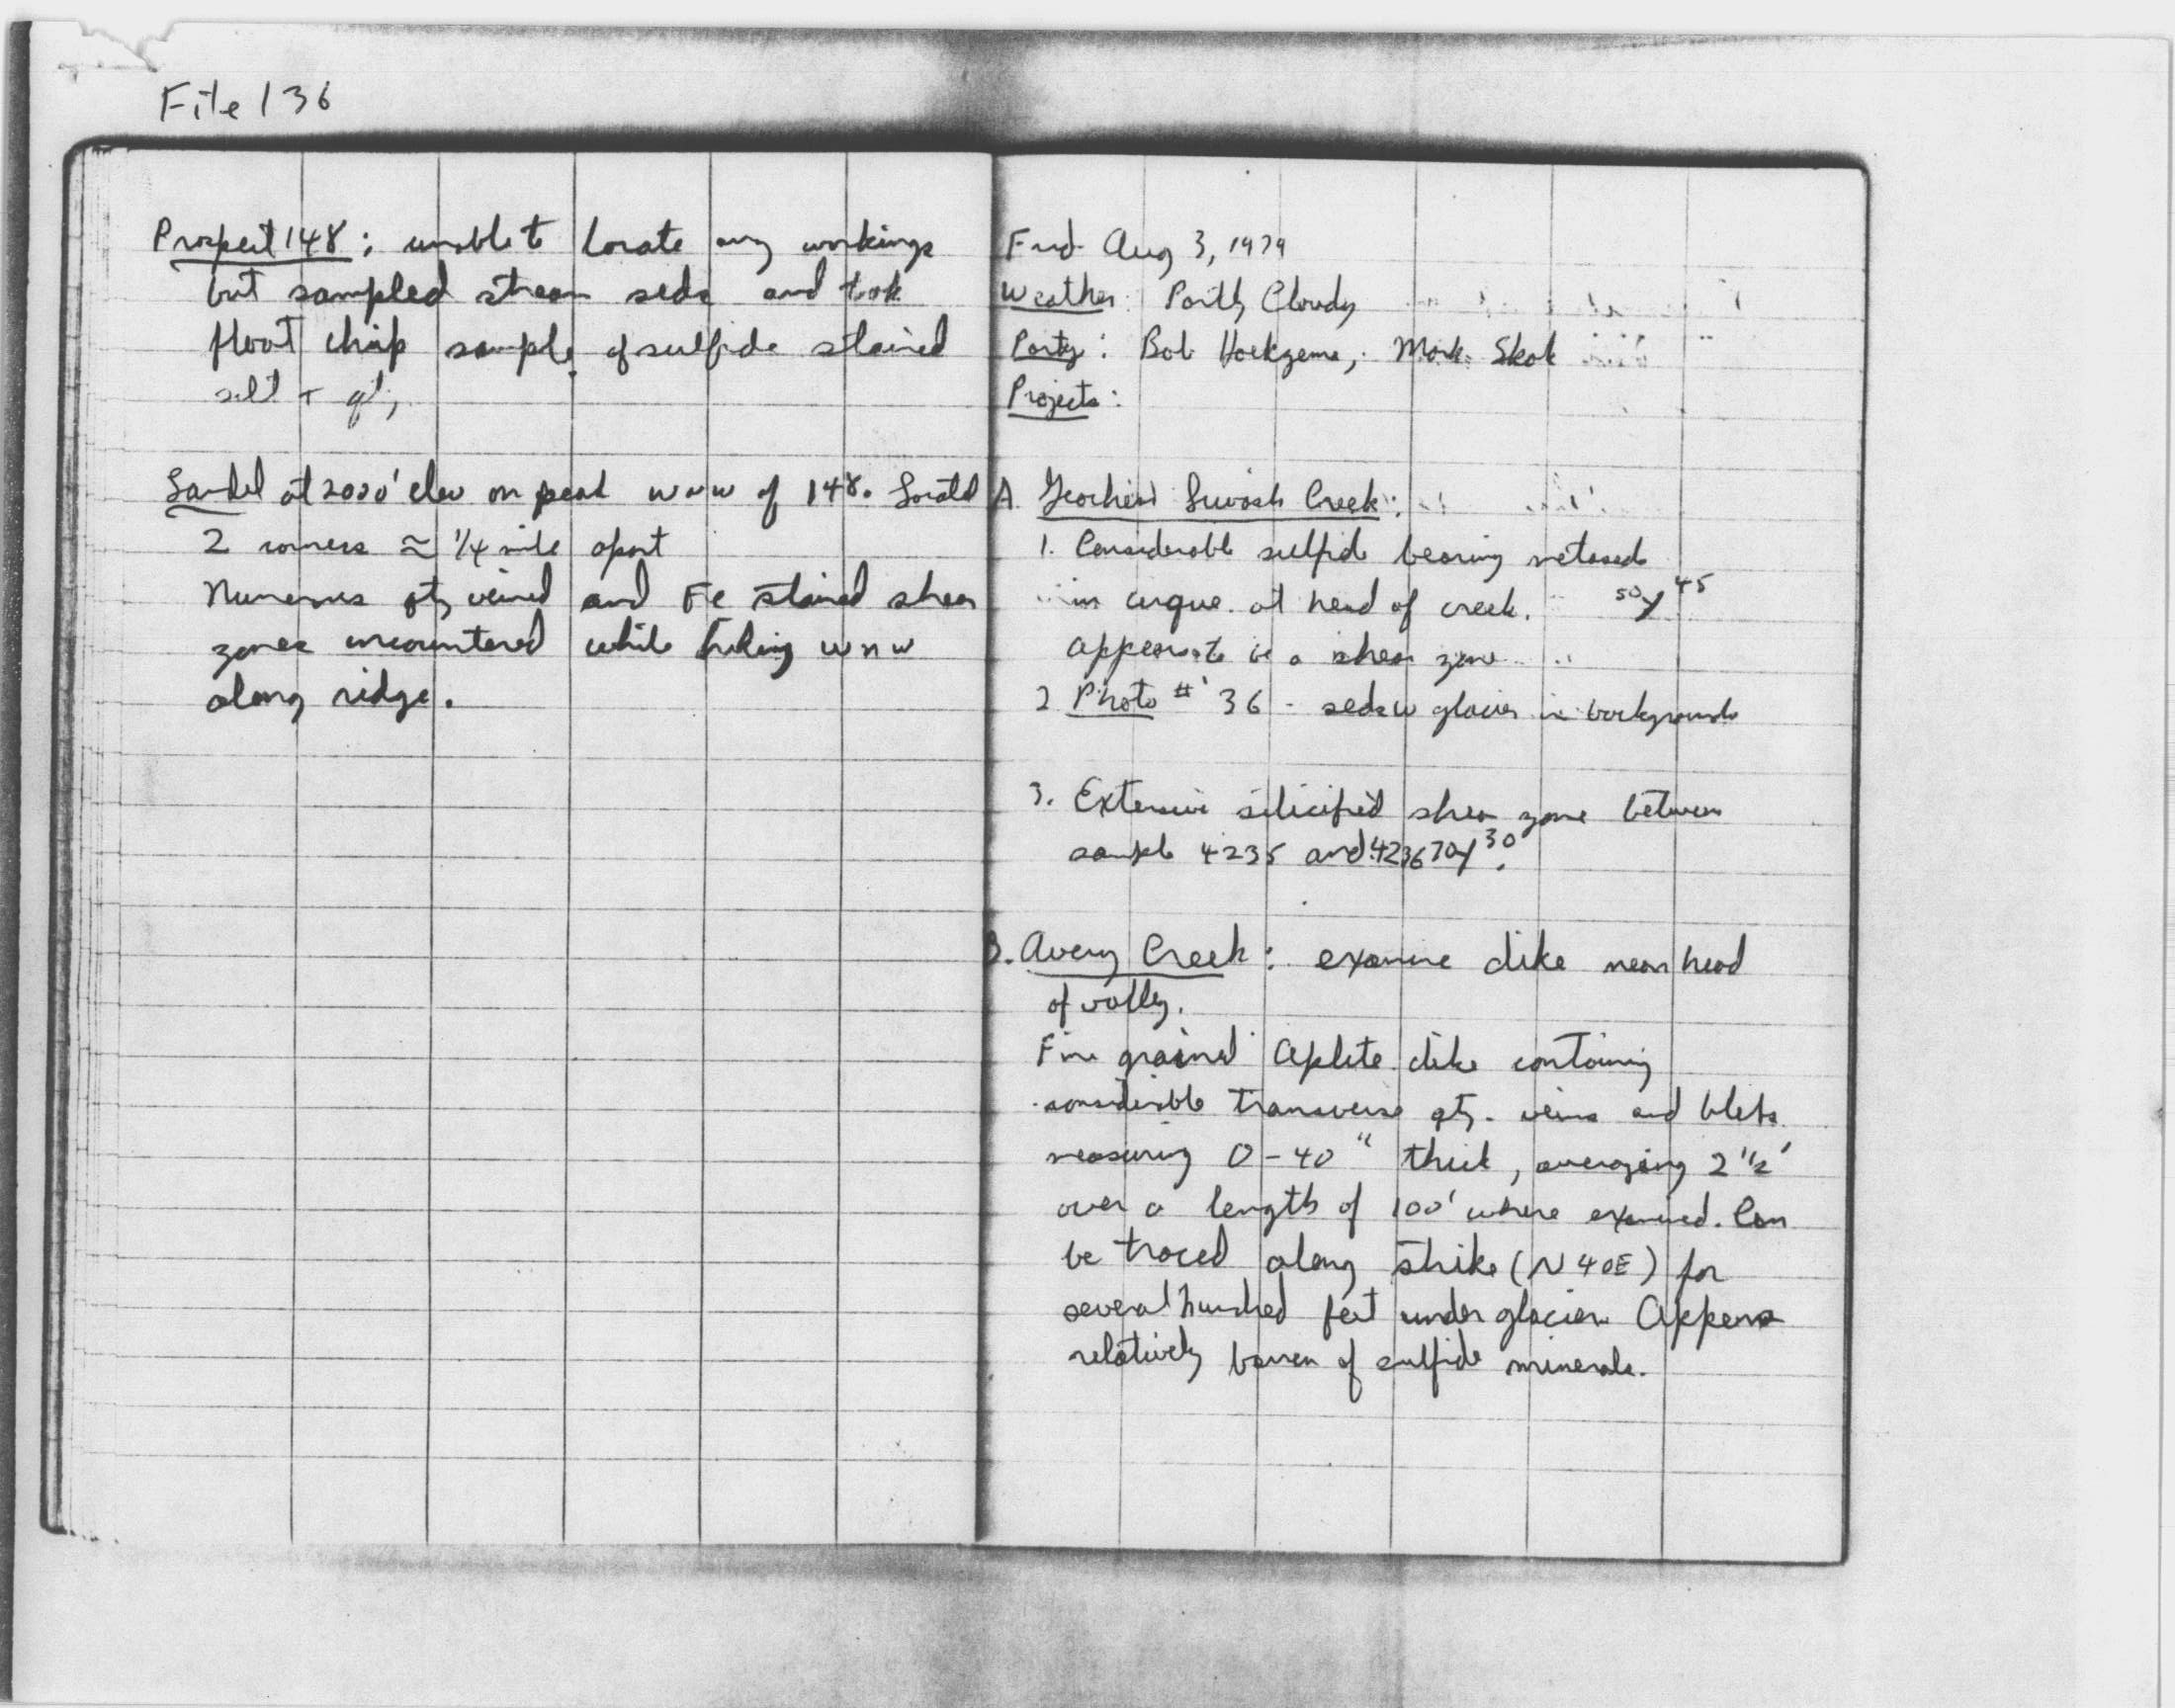 File 136
Prospect 148: unable to locate any workings
but sampled stream seds and took
float chip sample of sulfide stained
silt + qtz
Landed at 2000' elev on peak WNW of 148. Located
2 corners ≈ 1/4 mile apart
Numerous qtz veined and Fe stained shear
zones encountered while hiking WNW
along ridge.
Frid Aug 3, 1979
Weather: Partly Cloudy
Party: Bob Hoekzema, Mark
Projects:
A. Geochem Creek:
1. Considerable sulfide bearing metaseds
in cirque at head of creek. 50 45
appears to be a shear zone
2 Photo # 36 - seds w glacier in background
3. Extensive silicified shear zone between
sample 4235 and 4236 70 30.
B. Avery Creek: examine dike near head
of valley.
Fine grained Aplite dike containing
considerable transverse qtz. veins and blebs
measuring 0-40" thick, averaging 2 1/2'
over a length of 100' where examined. Can
be traced along strike (N40E) for
several hundred feet under glacier. Appears
relatively barren of sulfide minerals.